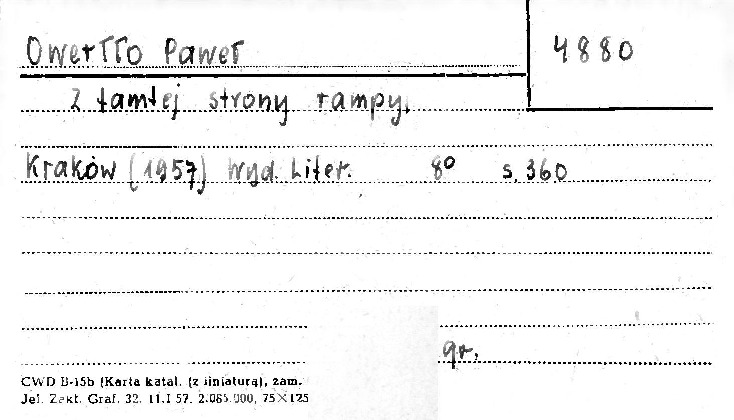 Owerłło Paweł
4880
Z tamtej strony rampy.
Kraków (1957) Wyd. Liter. 8° s. 360
gr.
CWD B-15b (Karta katal. (z liniaturą), zam.
Jel. Zakt. Graf. 32. 11.I 57. 2.085.000, 75×125